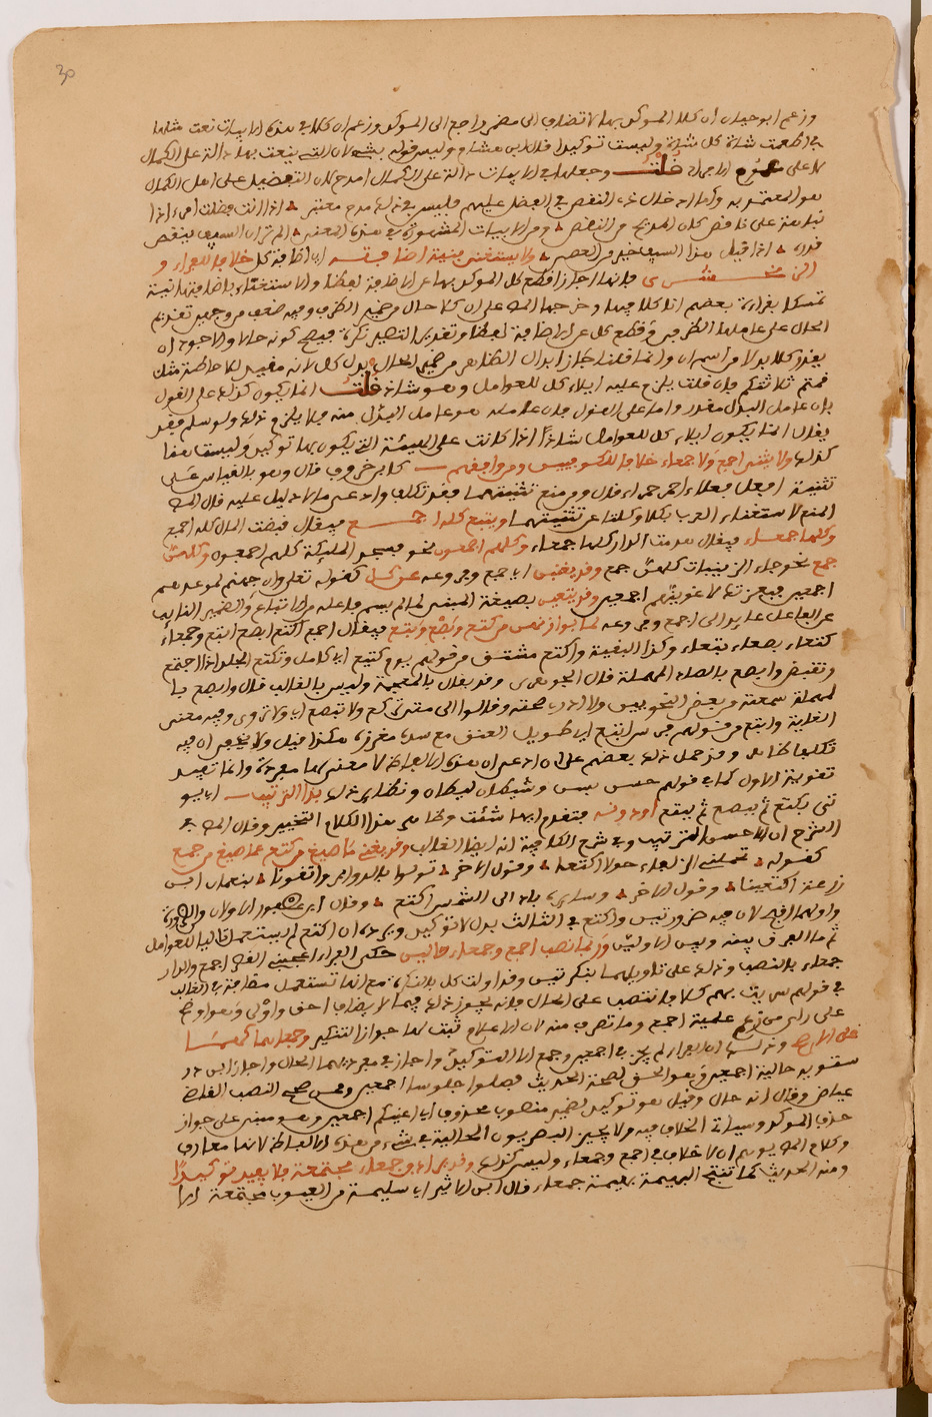 30
وزعم ابو حيان ان كلا المؤكد بها لا تضاف الى مضمر راجع الى المؤكد وزعم ان كلا في هذه الابيات نعت مثلها
في اطعمت شاة كل شاة وليست توكيدا قال ابن هشام وليس قوله بشيء لان التي ينعت بها دالة على الكمال
لا على عموم الافراد قلت وجعلها في الابيات دالة على الكمال امدح لان التفضيل على اهل الكمال
هو المعتد به واما ادخال ذي النقص في الفضل عليهم فليس في ذلك مدح معتبر اذا انت فضلت امرءا ذا
نباهة على ناقص كان المديح من النقص ومن الابيات المشهورة في هذا المعنى الم تر ان السيف ينقص
قدره اذا قيل هذا السيف خير من العصى ولا يستغنى بنية اضافته اي اضافة كل خلافا للفراء و
الزمخشري فانهما اجازا قطع كل المؤكد بها عن الاضافة لفظا والاستغناء باضافتها نية
تمسكا بقراءة بعضهم انا كلا فيها وخرجها المص على ان كلا حال من ضمير الظرف وفيه ضعف من وجهين تقديم
الحال على عاملها الظرفي وقطع كل عن الاضافة لفظا وتقديرا لتصير نكرة فيصح كونه حالا والاجود ان
يقدر كلا بدلا من اسم ان وانما قلنا جاز ابدال الظاهر من ضمير الحال بدل كل لانه مفيد للاحاطة مثل
قمتم ثلاثتكم فان قلت يلزم عليه ايلاء كل للعوامل وهو شاذ قلت انما يكون كذلك على القول
بان عامل البدل مقدر واما على القول بان عامله هو عامل المبدل منه فلا يلزم ذلك ولو سلم فقد
يقال انما يكون ايلاء كل للعوامل شاذا اذا كانت على الهيئة التي يكون بها توكيد وليست هنا
كذلك ولا يثنى اجمع ولا جمعاء خلافا للكوفيين ومن وافقهم كابن خروف قال وهو بالقياس على
تثنية افعل فعلاء احمر حمراء قال ومن منع تثنيتهما فقد تكلف وادعى ما لا دليل عليه قال المص
المنع لاستغناء العرب بكلا وكلتا عن تثنيتهما ويتبع كله اجمع فيقال قبضت المال كله اجمع
وكلها جمعاء فيقال هدمت الدار كلها جمعاء وكلهم اجمعون نحو فسجد الملئكة كلهم اجمعون وكلهن
جمع نحو جاء الزينبات كلهن جمع وقد يغني اي اجمع وفروعه عن كل كقوله تعلى وان جهنم لموعدهم
اجمعين فبعزتك لاغوينهم اجمعين وقد يتعين بصيغة المبني لما لم يسم فاعله من الاتباع والضمير النايب
عن الفاعل عايد الى اجمع وفروعه لما يوازنهن من كتع وبصع وبتع فيقال اجمع اكتع ابصع ابتع وجمعاء
كتعاء بصعاء بتعاء وكذا البقية واكتع مشتق من قولهم يوم كتيع اي كامل وتكتع الجلد اذا اجتمع
وتقبض وابصع بالصاد المهملة قال الجوهري وقد يقال بالمعجمة وليس بالغالب قال وابصع با
لمهملة سمعته من بعض النحويين ولا ادري صحته وقالوا الى متى تكرع ولا تبضع اي ولا تروى وفيه معنى
الغاية وابتع من قولهم فرس ابتع اي طويل العنق مع شدة مغرزه هكذا قيل ولا يخفى ان فيه
تكلفا ظاهرا وقد حمل ذلك بعضهم على ان ادعى ان هذه الالفاظ لا معنى لها مفردة وانما تفيد
تقوية الاول كما في قولهم حسن بسن وشيطان ليطان ونظاير ذلك بهذا الترتيب اي يو
تى بكتع ثم ببصع ثم ببتع او دونه فتقدم ايها شئت وظاهر هذا الكلام التخيير وقال المص في
الشرح ان الاحسن الترتيب وفي شرح الكافية انه ايضا الغالب وقد يغني ما صيغ من كتع عما صيغ من جمع
كقوله تحملني الذلفاء حولا اكتعا وقول الاخر تولوا بالدوابر واتقونا بنعمان ابن
زرعة اكتعينا وقول الاخر وسايره باد الى الشمس اكتع وقال ابن عصفور الاولان والثالث
واولهما اقبح لان فيه ضرورتين واكتع في الثالث بدل لا توكيد ويرده ان اكتع لم يستعمل تاليا للعوامل
ثم ما الفرق بينه وبين الاولين وربما نصب اجمع وجمعاء حالين حكى الفراء اعجبني القصر اجمع والدار
جمعاء بالنصب وذلك على تاويلهما بنكرتين وقد اولت كل بالنكرة مع انها تستعمل مضافة في الغالب
في قولهم مررت بهم كلا فانتصب على الحال فانه يجوز ذلك فيما لا يضاف احق واولى وهو اوضح
على راي من زعم علمية اجمع وما تصرف منه لان الاعلام ثبت لها جواز التنكير وجعلهما كهما
على الاصح وذلك ان الفراء لم يجز في اجمعين وجمع الا التوكيد واجاز في مفرديهما الحال واجاز ابن در
ستويه حالية اجمعين وهو الحق لصحة الحديث فصلوا جلوسا اجمعين وممن صحح النصب القاضي
عياض وقال انه حال وقيل هو توكيد لضمير منصوب محذوف اي اعنيكم اجمعين وهو مبني على جواز
حذف المؤكد وسيأتي الخلاف فيه ولا يجيز البصريون الحالية في شيء من هذه الالفاظ لانها معارف
وكلام المص يوهم ان لا خلاف في اجمع وجمعاء وليس كذلك وقد يراد بجمعاء مجتمعة فلا يفيد توكيدا
ومنه الحديث كما تنتج البهيمة بهيمة جمعاء قال ابن الاثير اي سليمة من العيوب مجتمعة الا